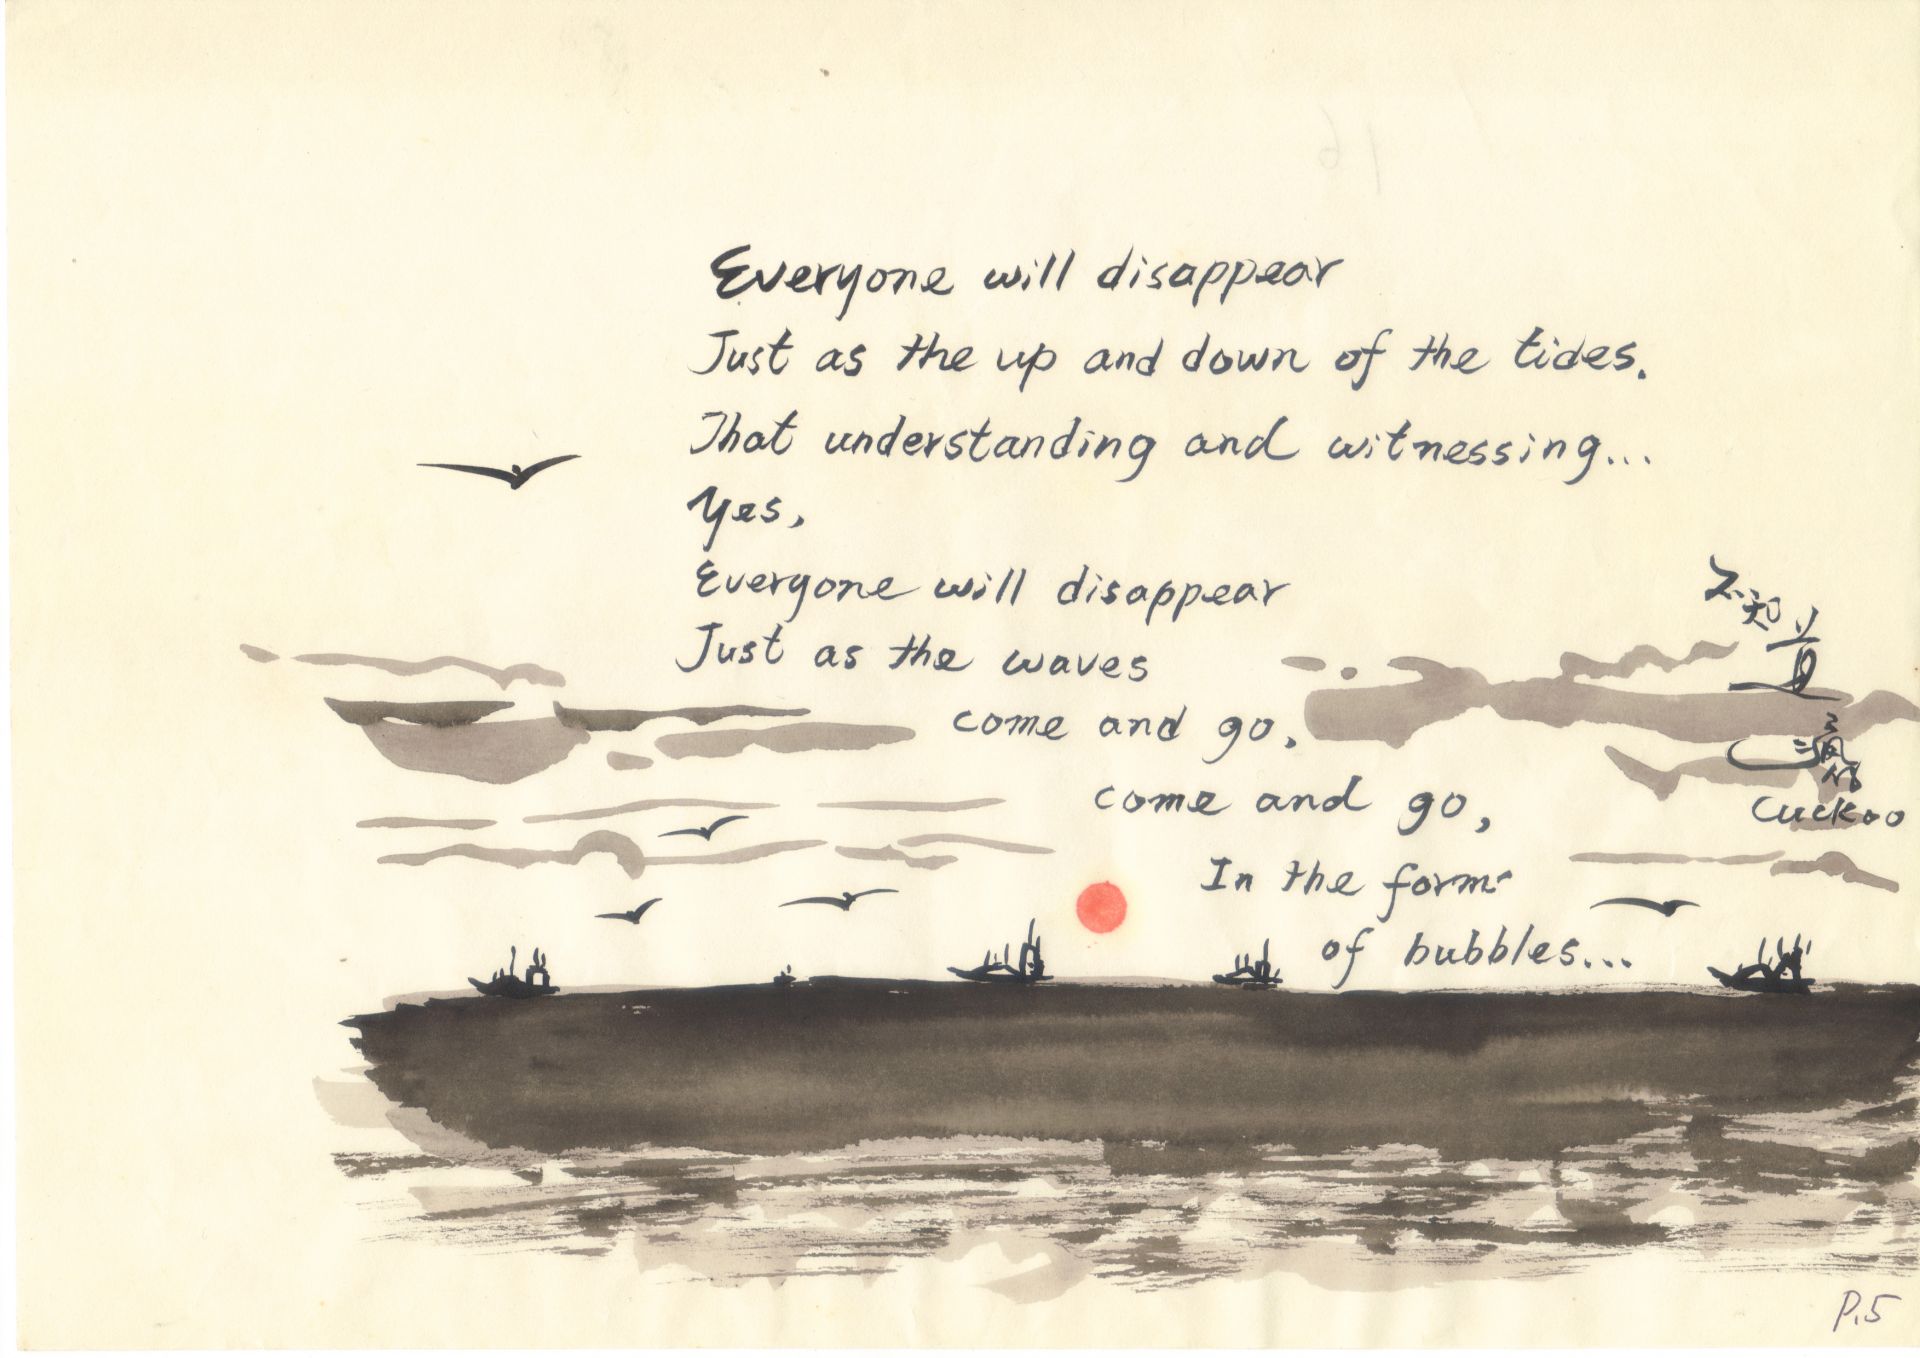 Everyone will disappear
Just as the up and down of the tides.
That understanding and witnessing...
Yes,
Everyone will disappear
Just as the waves
come and go,
come and go,
In the form
of bubbles...
不知道
Cuckoo
P.5